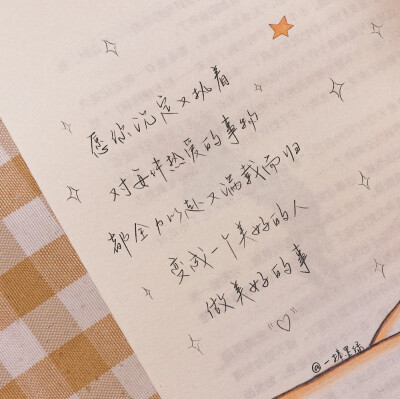 愿你沉定又执着
对每件热爱的事物
都全力以赴又满载而归
变成一个美好的人
做美好的事
"♡"